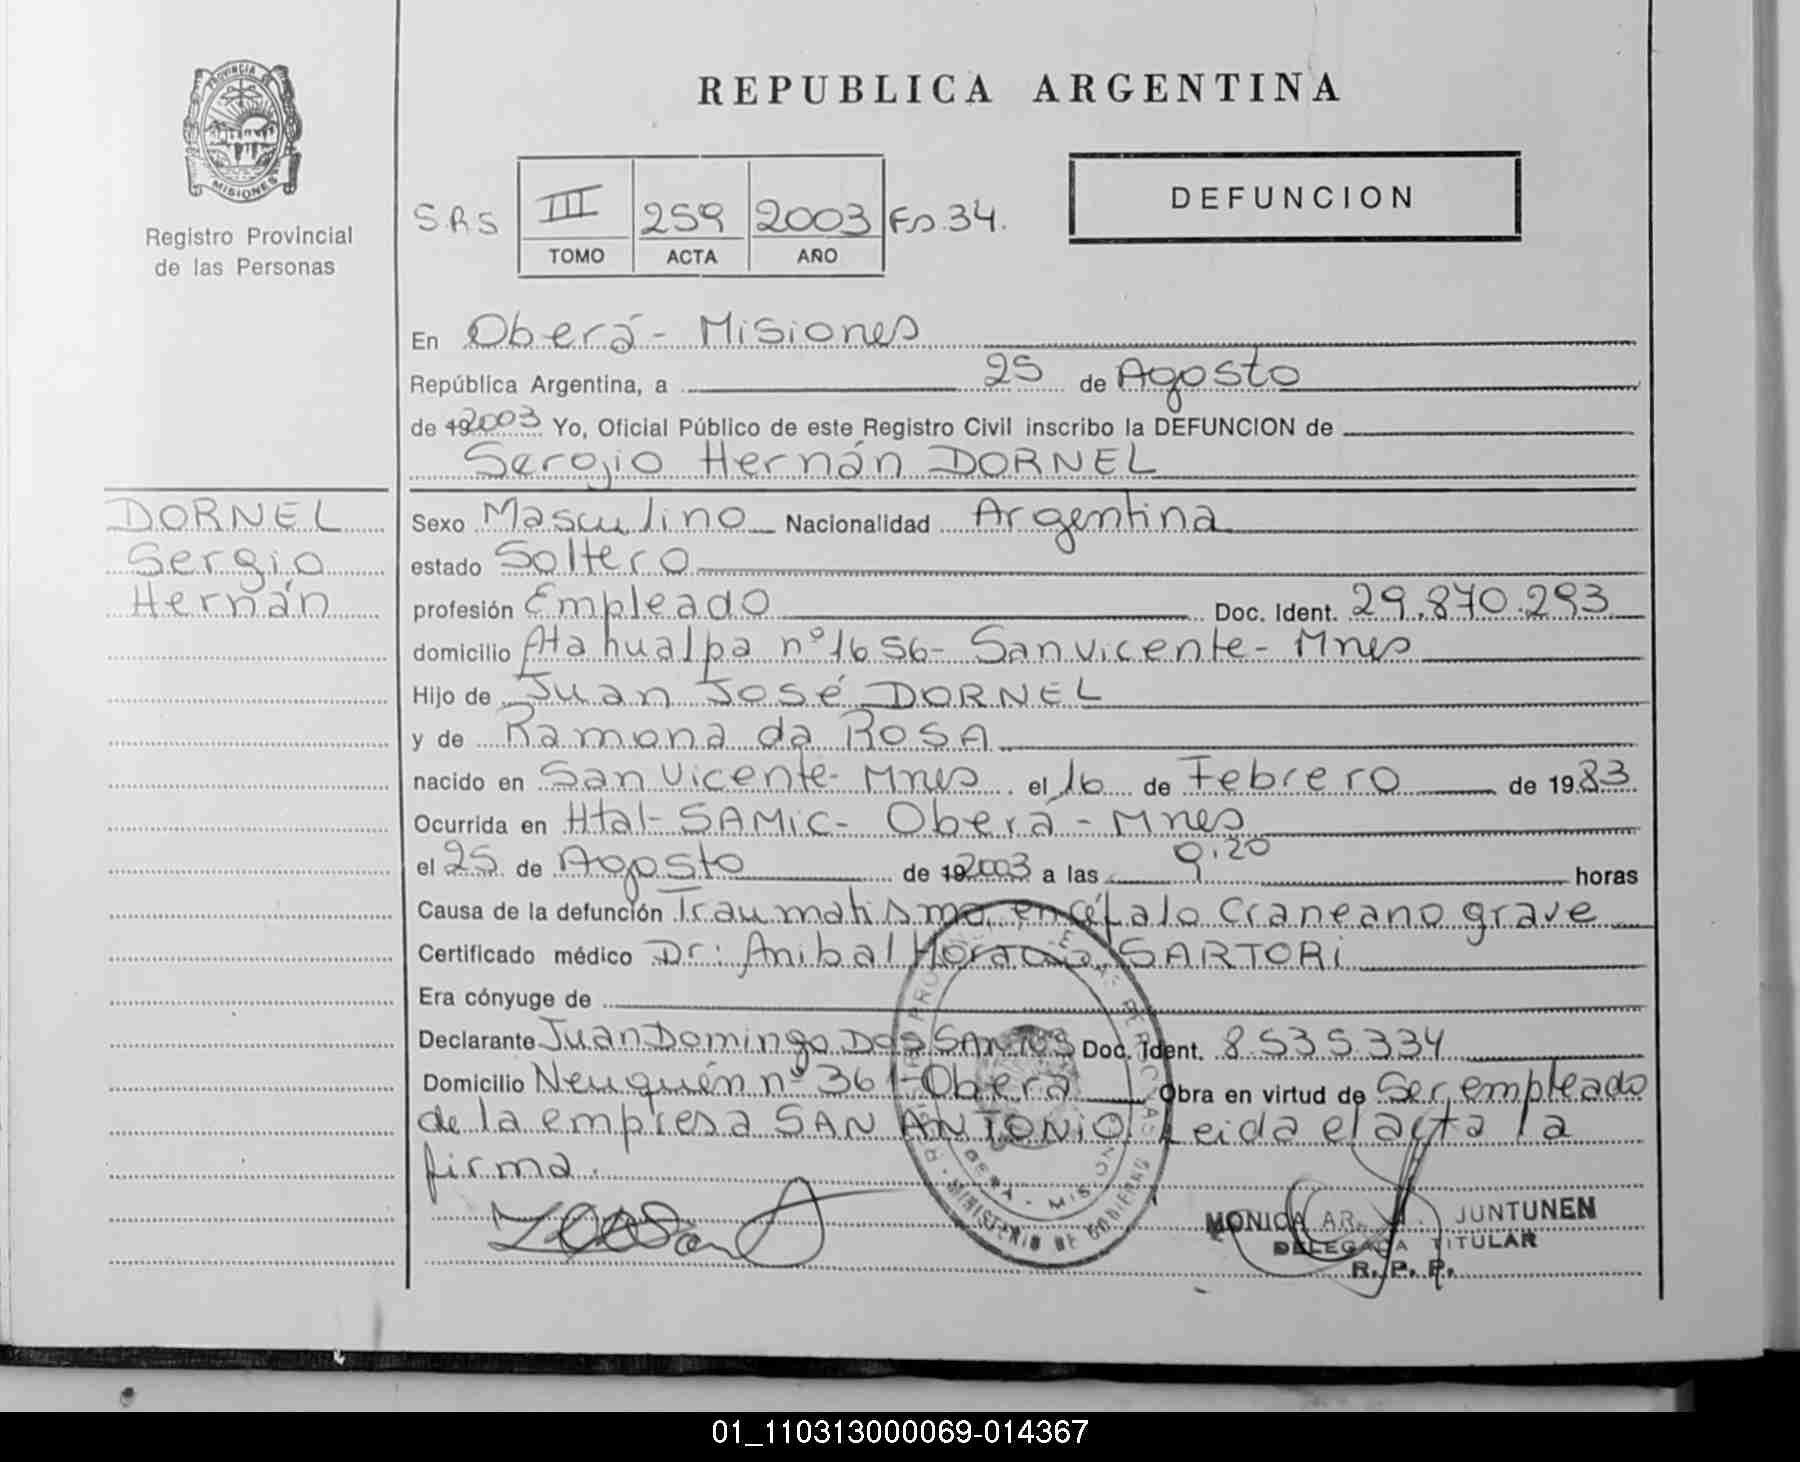 PROVINCIA DE
MISIONES
Registro Provincial
de las Personas
REPUBLICA ARGENTINA
DEFUNCION
S.R.S III 259 2003 Fo.34.
TOMO ACTA AÑO
En Oberá - Misiones
República Argentina, a 25 de Agosto
de 192003 Yo, Oficial Público de este Registro Civil inscribo la DEFUNCION de
Sergio Hernán DORNEL
DORNEL
Sergio
Hernán
Sexo Masculino Nacionalidad Argentina
estado Soltero
profesión Empleado Doc. Ident. 29.870.293
domicilio Atahualpa nº 1656- San vicente- Mnes
Hijo de Juan José DORNEL
y de Ramona da ROSA
nacido en San Vicente- Mnes el 16 de Febrero de 1983
Ocurrida en Htal- SAMic- Oberá - Mnes
el 25 de Agosto de 192003 a las 9:20 horas
Causa de la defunción Traumatismo encéfalo Craneano grave
Certificado médico Dr: Anibal Horacio SARTORi
Era cónyuge de
Declarante Juan Domingo DOS SANTOS Doc. Ident. 8.535.334
Domicilio Neuquén nº 361- Oberá Obra en virtud de Ser empleado
de la empresa SAN ANTONIO Leida el acta la
firma.
MINISTERIO DE GOBIERNO
MONICA JUNTUNEN
DELEGADA TITULAR
R. P. P.
01_110313000069-014367